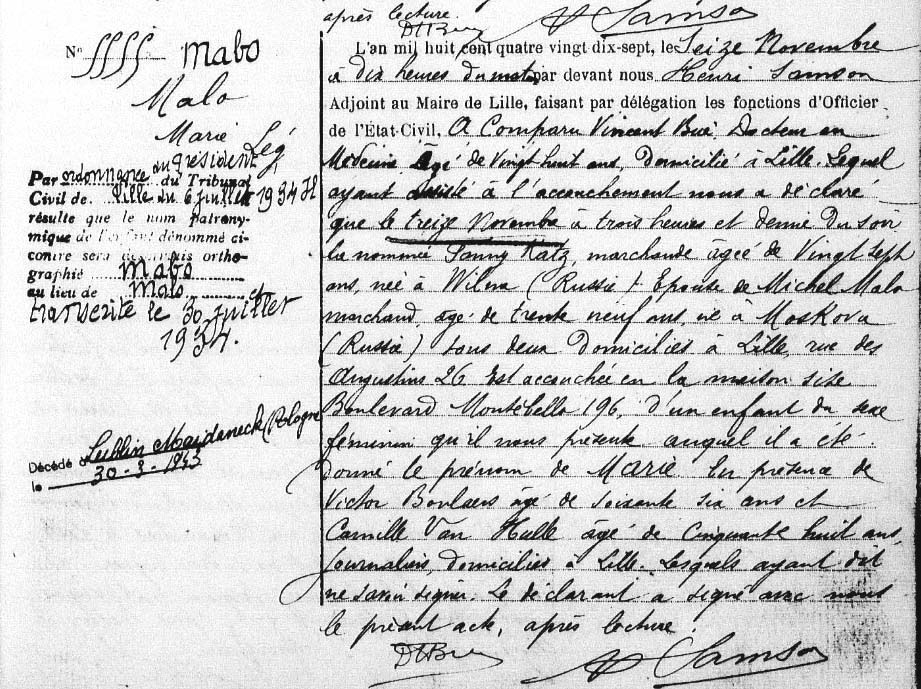 après lecture.
Samson
N° 5555 Mabo
Malo
Marie
Lég
Par ordonnance du Président
du Tribunal
Civil de Lille du 6 juillet 1934
résulte que le nom patrony-
mique de l'enfant dénommé ci-
contre sera désormais ortho-
graphié Mabo
au lieu de Malo et
transcrite le 30 juillet
1934.
Décédé à Lublin Maïdaneck (Pologne)
le 30-3-1943
L'an mil huit cent quatre vingt dix-sept, le Seize Novembre
à dix heures du matin par devant nous Henri Samson
Adjoint au Maire de Lille, faisant par délégation les fonctions d'Officier
de l'État-Civil, A Comparu Vincent Bué Docteur en
Médecine Agé de Vingt huit ans, Domicilié à Lille. Lequel
ayant assisté à l'accouchement nous a déclaré
que le treize Novembre à trois heures et demie Du soir
la nommée Fanny Katz, marchande âgée de Vingt sept
ans, née à Wilna (Russie) Epouse de Michel Malo
marchand, âgé de trente neuf ans, né à Moskova
(Russie) tous deux Domiciliés à Lille, rue des
Augustins 26 Est accouchée en la maison sise
Boulevard Montébello 196, D'un enfant du sexe
féminin qu'il nous présente auquel il a été
donné le prénom de Marie En présence de
Victor Boulaers âgé de soixante six ans et
Camille Van Hulle âgé de Cinquante huit ans,
Journaliers, domiciliés à Lille. Lesquels ayant dit
ne savoir signer. Le déclarant a signé avec nous
le présent acte, après lecture
Samson